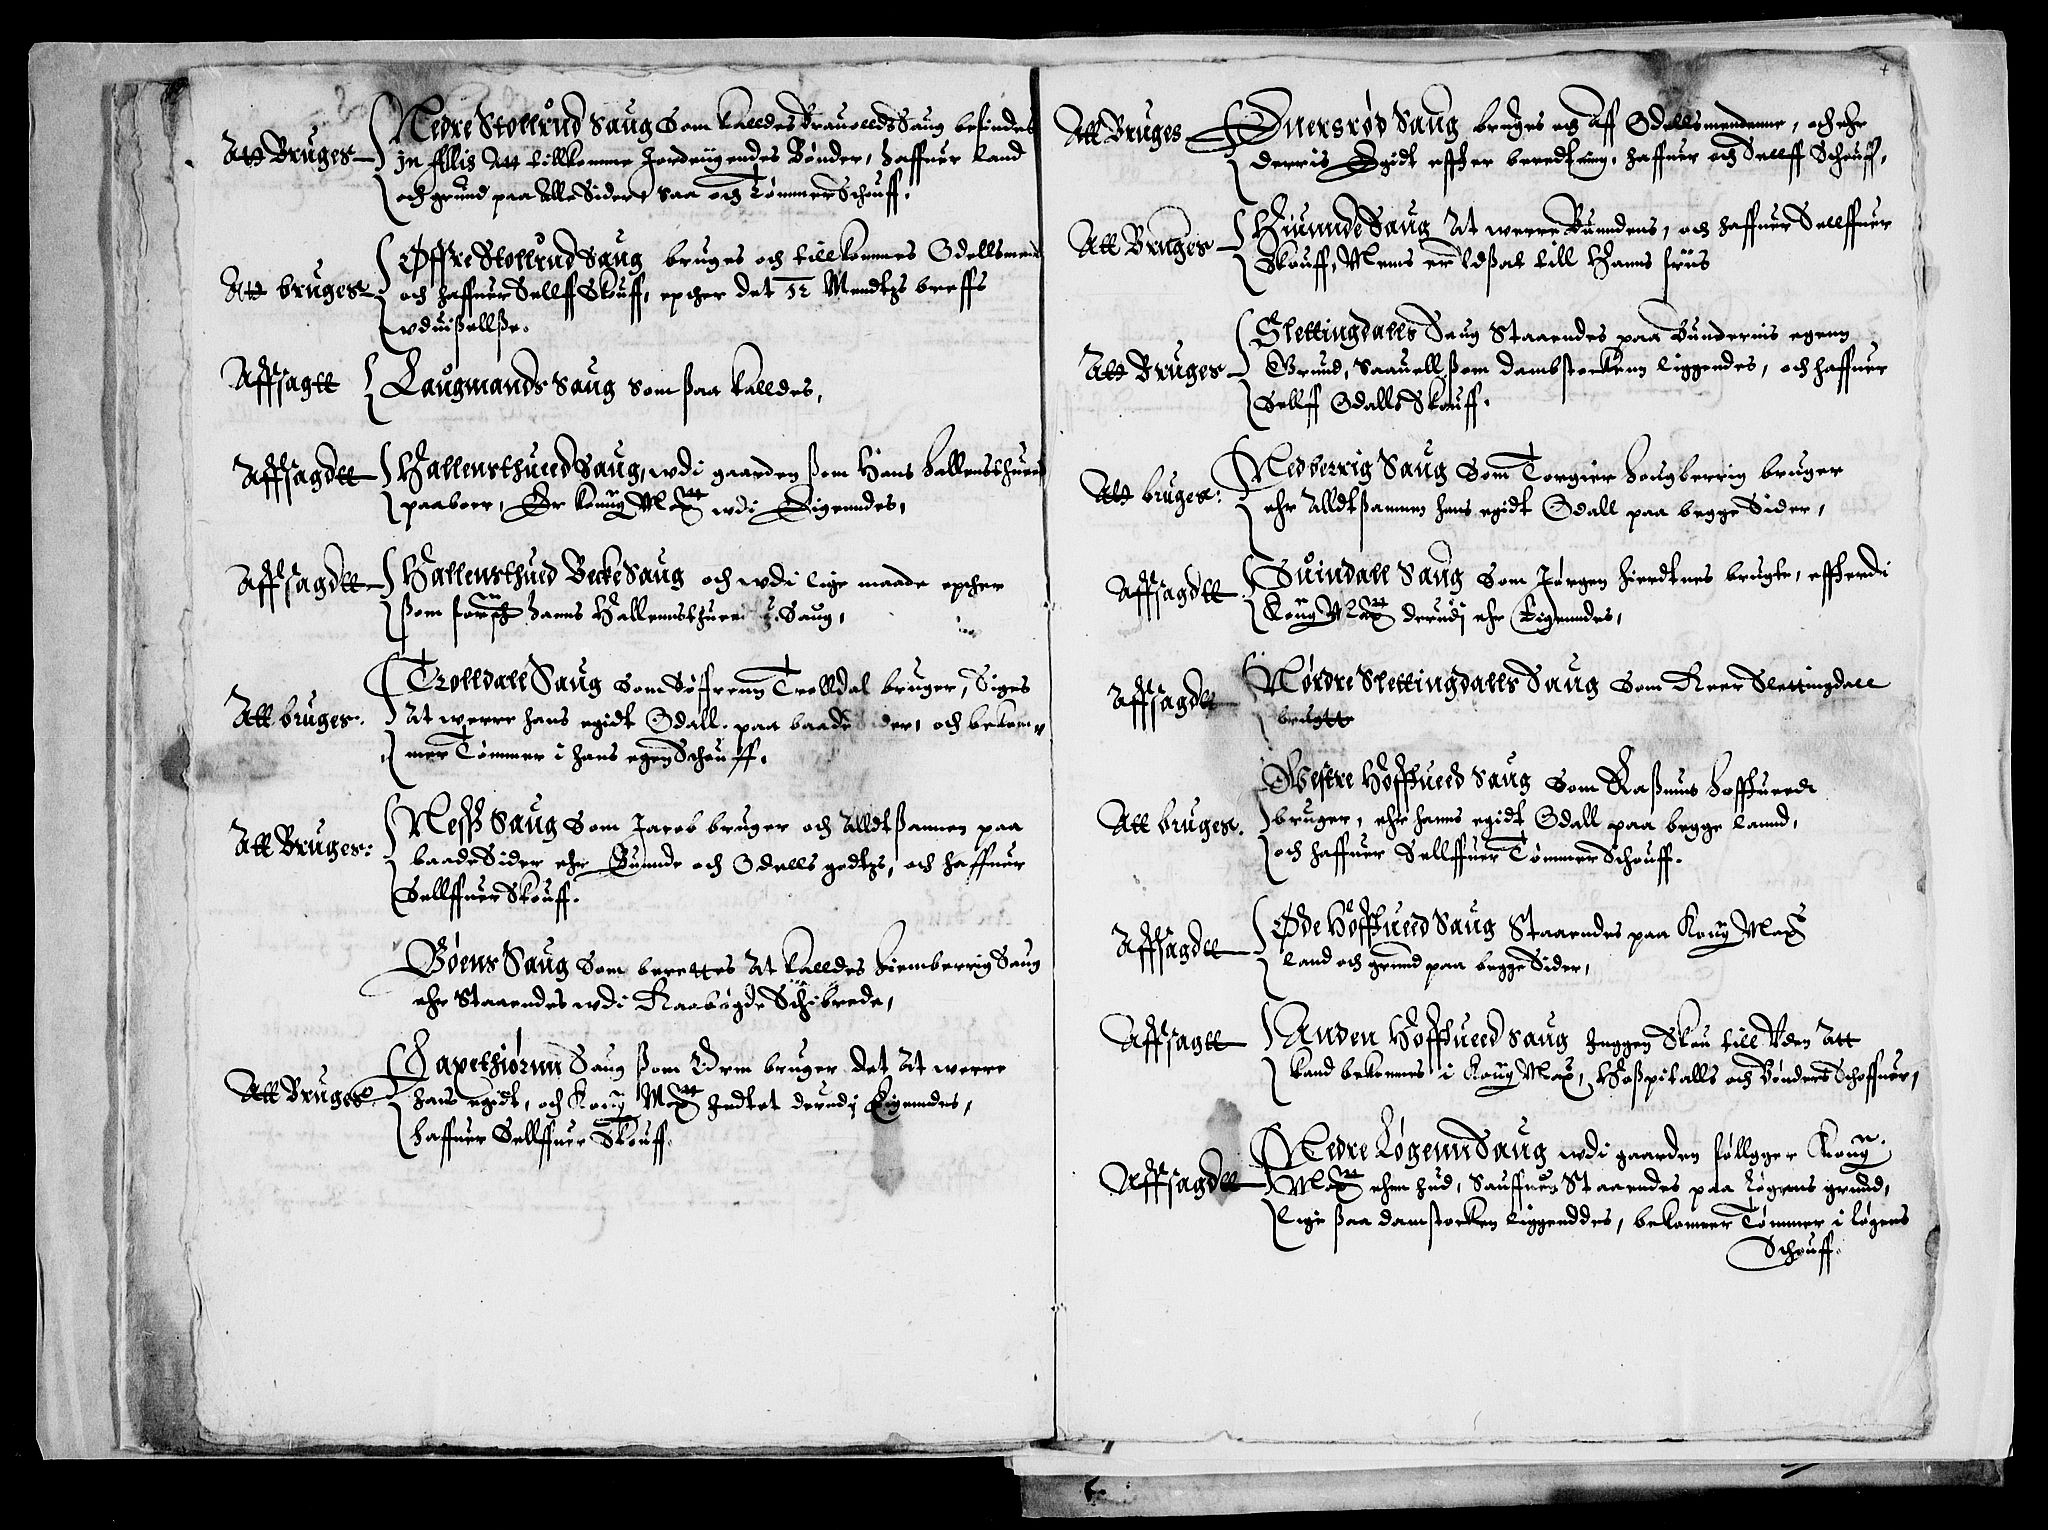 Att Bruges
Nedre Stollrud Saug Som kalldes Krauolds Saug befindes
in Ellis Att tillkomme Jordeiigendes Bønder, haffuer land
och grund paa Alle Sider, saa och Tømmer Schouff.
Att bruges
Øffre Stollrud Saug bruges och tillkommes Odellsmend
och haffuer Sellff Skouff, epther det 12 Mendtz breffs
vduißellße.
Affsagtt
Laugmands Saug Som ßaa kalldes,
Affsagdtt
Hallensthued Saug, wdi gaarden ßom Hans Hallensthued
paaboer, Er Konng Matt wdi Eigenndes,
Affsagdtt
Hallensthued Becke Saug och wdi lige maade epther
ßom forsch Hanns Hallennsthued Saug,
Att bruges:
Trolldall Saug Som Søffrenn Trolldal bruger, Siges
At werre hans egidt Odall paa baade Sider, och bekom-
mer Tømmer i hans egen Schouff.
Att Bruges:
Neß Saug Som Jacob bruger och Alldtßammen paa
baade Sider ehr Bunnde och Odells godtz, och haffuer
Sellffuer Skouff.
Bøens Saug Som berettes At kalldes Hiemberrig Saug
ehr Staaendes wdi Raabøgde Schibrede,
Att Bruges
Tapethiørnn Saug ßom Orm bruger det At werre
hans egidt, och Konng Matt Indtet derudj Eigenndes,
haffuer Sellffuer Skouff.
4
Att Bruges
Duersrød Saug bruges og Aff Odellsmendenne, och ehr
derris Egidt effther beredtning, haffuer och Sellff Schouff,
Att Bruges
Hiunnde Saug At werre Bunndens, och haffuer Sellffuer
Skouff, Mens er Vdßat till Hanns friis
Att Bruges
Slettingdalls Saug Staaendes paa Bundernis egenn
Grund, Saauellßom damstockenn liggendes, och haffuer
Sellff Odalls Skouff.
Att bruges:
Nedberrig Saug Som Torgier Hougberrig bruger
ehr Alldtßammen hans egidt Odall paa begge Sider,
Affsagdtt
Suindall Saug Som Jørgen Hierdtnes brugte, effterdi
Konng Matt derudj ehr Eigenndes,
Affsagdtt
Nørdre Slettingdalls Saug Som Roer Slettingdall
brugtte
Att bruges.
Vestre Høffhued Saug Som Raßmus Hoffhued
bruger, ehr hanns egidt Odall paa begge lannd,
och haffuer Sellffuer Tømmer Schouff.
Affsagdtt
Øde Høffhued Saug Staaendes paa Kong Matt
land och grund paa begge Sider,
Affsagtt
Anden Hoffhued Saug Inggen Skou till Aden Att
kand bekommes i Kong Matt, Hoßpitalls och Bønders Schoffuer,
Affsagdtt
Nedre Løgenn Saug wdi gaarden følgger Kong
Matt ehen hud, Sauffuen Staaendes paa Løgens grund,
lige ßaa damstocken liggenddes, bekomer Tømmer i løgens
Schouff.